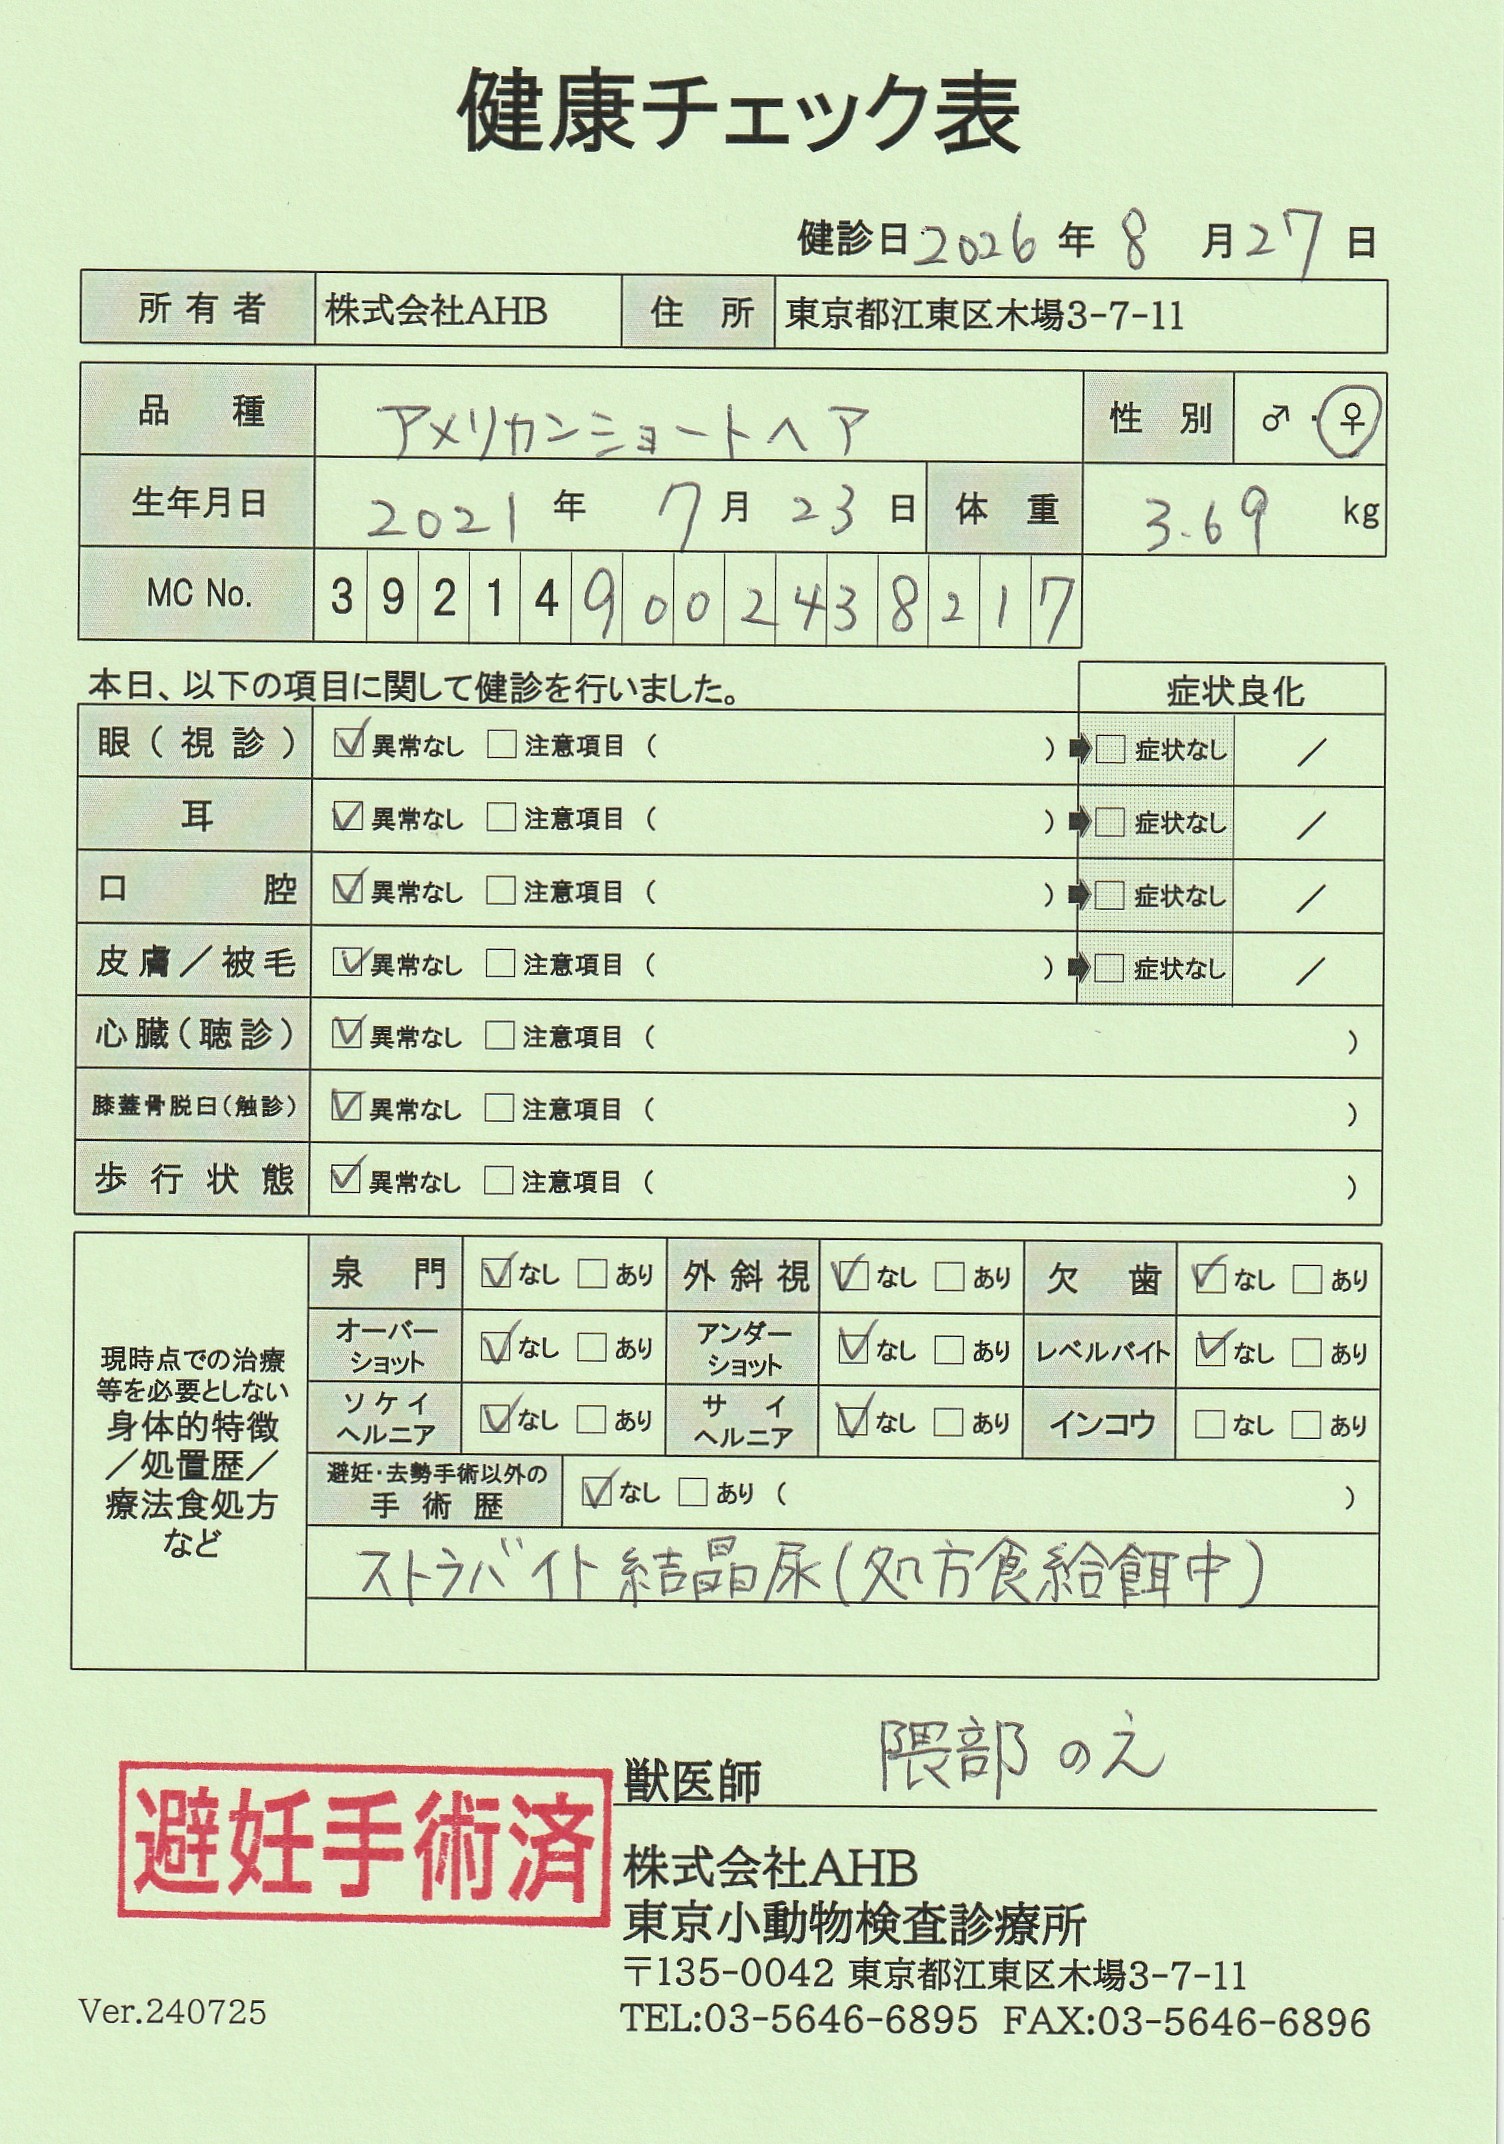 健康チェック表
健診日 2026 年 8 月 27 日
所有者 株式会社AHB 住所 東京都江東区木場3-7-11
品種 アメリカンショートヘア 性別 ♂・♀
生年月日 2021 年 7 月 23 日 体重 3.69 kg
MC No. 392149002438217
本日、以下の項目に関して健診を行いました。 症状良化
眼(視診) ☑異常なし □注意項目( ) ➡□症状なし /
耳 ☑異常なし □注意項目( ) ➡□症状なし /
口腔 ☑異常なし □注意項目( ) ➡□症状なし /
皮膚/被毛 ☑異常なし □注意項目( ) ➡□症状なし /
心臓(聴診) ☑異常なし □注意項目( )
膝蓋骨脱臼(触診) ☑異常なし □注意項目( )
歩行状態 ☑異常なし □注意項目( )
現時点での治療
等を必要としない
身体的特徴
/処置歴/
療法食処方
など
泉門 ☑なし □あり 外斜視 ☑なし □あり 欠歯 ☑なし □あり
オーバーショット ☑なし □あり アンダーショット ☑なし □あり レベルバイト ☑なし □あり
ソケイヘルニア ☑なし □あり サイヘルニア ☑なし □あり インコウ □なし □あり
避妊・去勢手術以外の手術歴 ☑なし □あり( )
ストラバイト結晶尿(処方食給餌中)
獣医師 隈部のえ
避妊手術済
株式会社AHB
東京小動物検査診療所
〒135-0042 東京都江東区木場3-7-11
TEL:03-5646-6895 FAX:03-5646-6896
Ver.240725